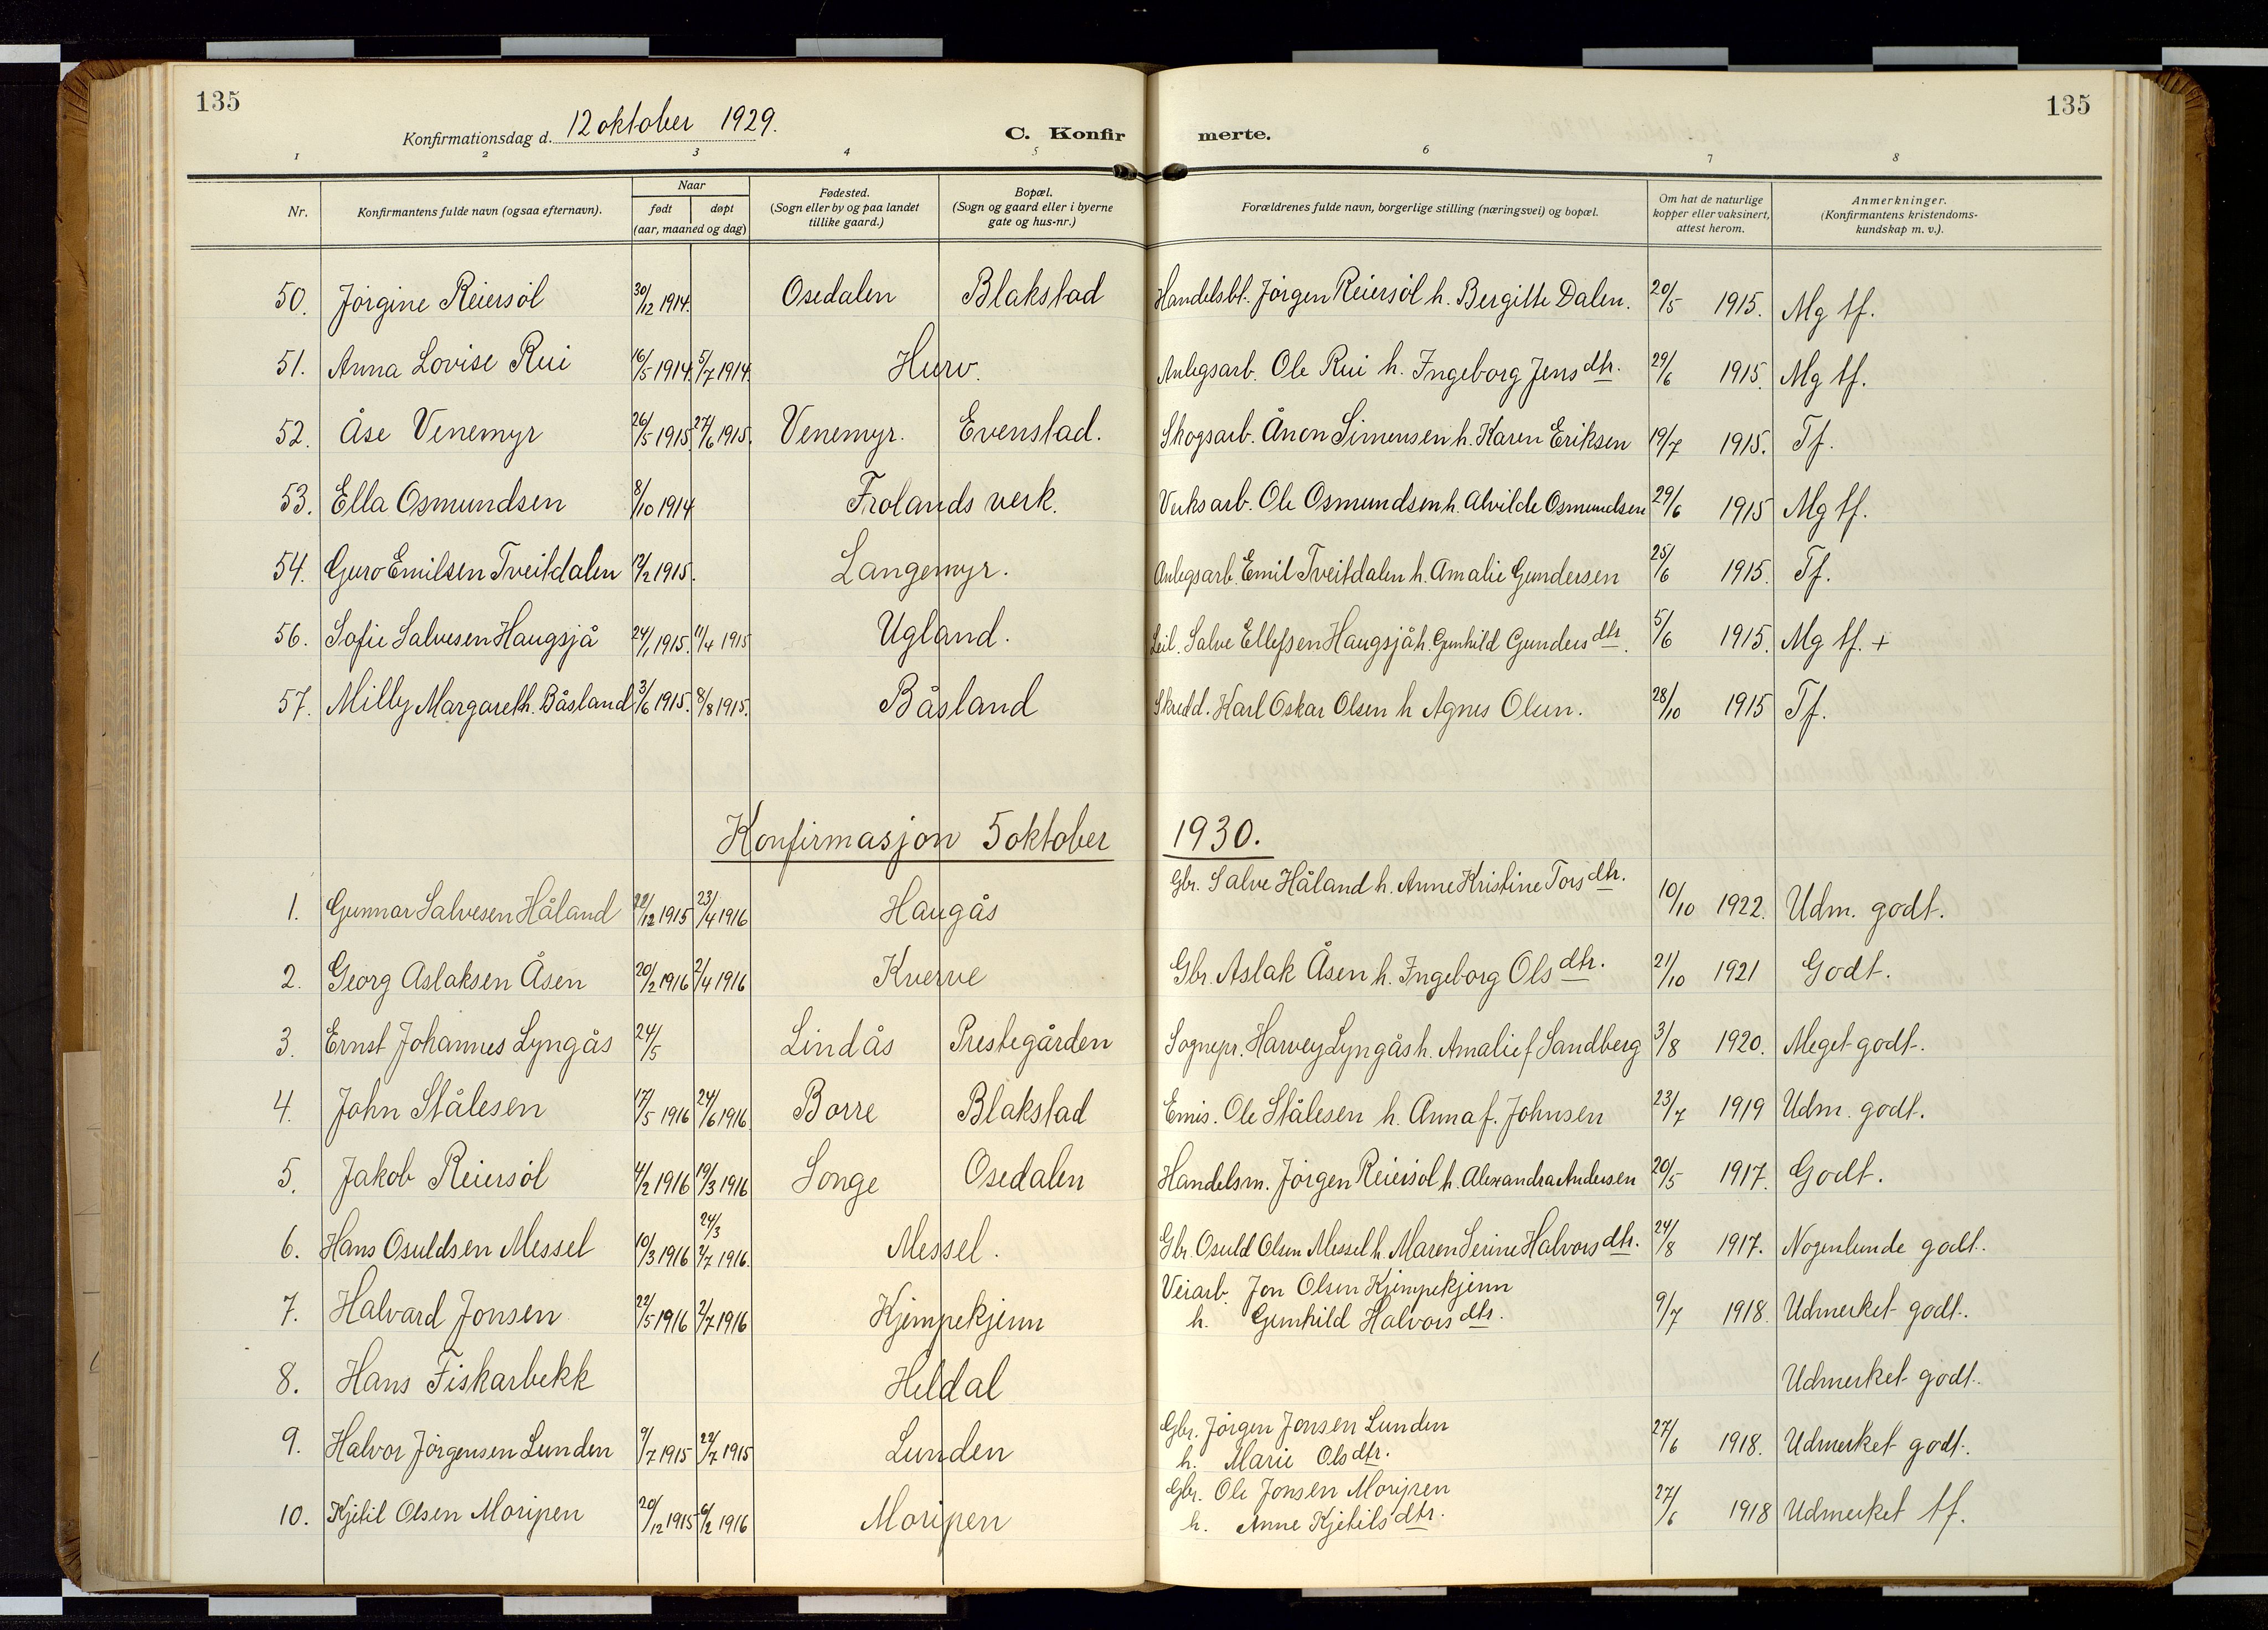 135
135
Konfirmationsdag d. 12 oktober 1929.
C. Konfir merte.
1 2 3 4 5 6 7 8
Nr.
Konfirmantens fulde navn (ogsaa efternavn).
Naar
født døpt
(aar, maaned og dag)
Fødested.
(Sogn eller by og paa landet
tillike gaard.)
Bopæl.
(Sogn og gaard eller i byerne
gate og hus-nr.)
Forældrenes fulde navn, borgerlige stilling (næringsvei) og bopæl.
Om hat de naturlige
kopper eller vaksinert,
attest herom.
Anmerkninger.
(Konfirmantens kristendoms-
kundskap m. v.).
50. Jørgine Reiersøl 30/12 1914. Osedalen Blakstad Handelsbt. Jørgen Reiersøl h. Bergitte Dalen. 20/5 1915. Mg tf.
51. Anna Lovise Rui 16/5 1914. 5/7 1914. Hurv. Anlegsarb. Ole Rui h. Ingeborg Jensdtr. 29/6 1915. Mg tf.
52. Åse Venemyr 26/5 1915. 27/6 1915. Venemyr. Evenstad. Skogsarb. Ånon Simensen h. Karen Eriksen 19/7 1915. Tf.
53. Ella Osmundsen 8/10 1914 Frolands verk. Verksarb. Ole Osmundsen h. Alvilde Osmundsen 29/6 1915 Mg tf.
54. Guro Emilsen Tveitdalen 12/2 1915. Langemyr. Anlegsarb. Emil Tveitdalen h. Amalie Gundersen 25/6 1915. Tf.
56. Sofie Salvesen Haugsjå 24/1 1915. 11/4 1915 Ugland. Leil. Salve Ellefsen Haugsjå h. Gunhild Gundersdtr. 5/6 1915. Mg tf. +
57. Milly Margareth. Båsland 3/6 1915. 8/8 1915. Båsland Skredd. Karl Oskar Olsen h Agnes Olsen. 28/10 1915 Tf.
Konfirmasjon 5 oktober 1930.
1. Gunnar Salvesen Håland 22/12 1915 23/4 1916 Haugås Gbr. Salve Håland h. Anne Kristine Torsdtr. 10/10 1922. Udm. godt.
2. Georg Aslaksen Åsen 20/2 1916 2/4 1916 Kverve Gbr. Aslak Åsen h. Ingeborg Olsdtr. 21/10 1921 Godt.
3. Ernst Johannes Lyngås 24/5 Lindås Prestegården Sognepr. Harvey Lyngås h. Amalie f Sandberg 3/8 1920. Meget godt.
4. John Stålesen 17/5 1916 24/6 1916. Borre Blakstad Emis. Ole Stålesen h. Anna f. Johnsen 23/7 1919 Udm. godt.
5. Jakob Reiersøl 4/2 1916 19/3 1916 Songe Osedalen Handelsm. Jørgen Reiersøl h. Alexandra Andersen 20/5 1917. Godt.
24/3
6. Hans Osuldsen Messel 10/3 1916 2/7 1916. Messel. Gbr. Osuld Olsen Messel h. Maren Serine Halvorsdtr. 24/8 1917. Nogenlunde godt.
Veiarb. Jon Olsen Kjempekjenn
7. Halvard Jonsen 22/5 1916 2/7 1916 Kjempekjenn h. Gunhild Halvorsdtr. 9/7 1918. Udmerket godt.
8. Hans Fiskarbekk Heldal Udmerket godt.
Gbr. Jørgen Jonsen Lunden
9. Halvor Jørgensen Lunden 9/7 1915 22/7 1915 Lunden h. Marie Olsdtr. 27/6 1918. Udmerket godt.
Gbr. Ole Jonsen Moripen
10. Kjetil Olsen Moripen 20/12 1915 6/2 1916 Moripen h. Anne Kjetilsdtr. 27/6 1918 Udmerket tf.